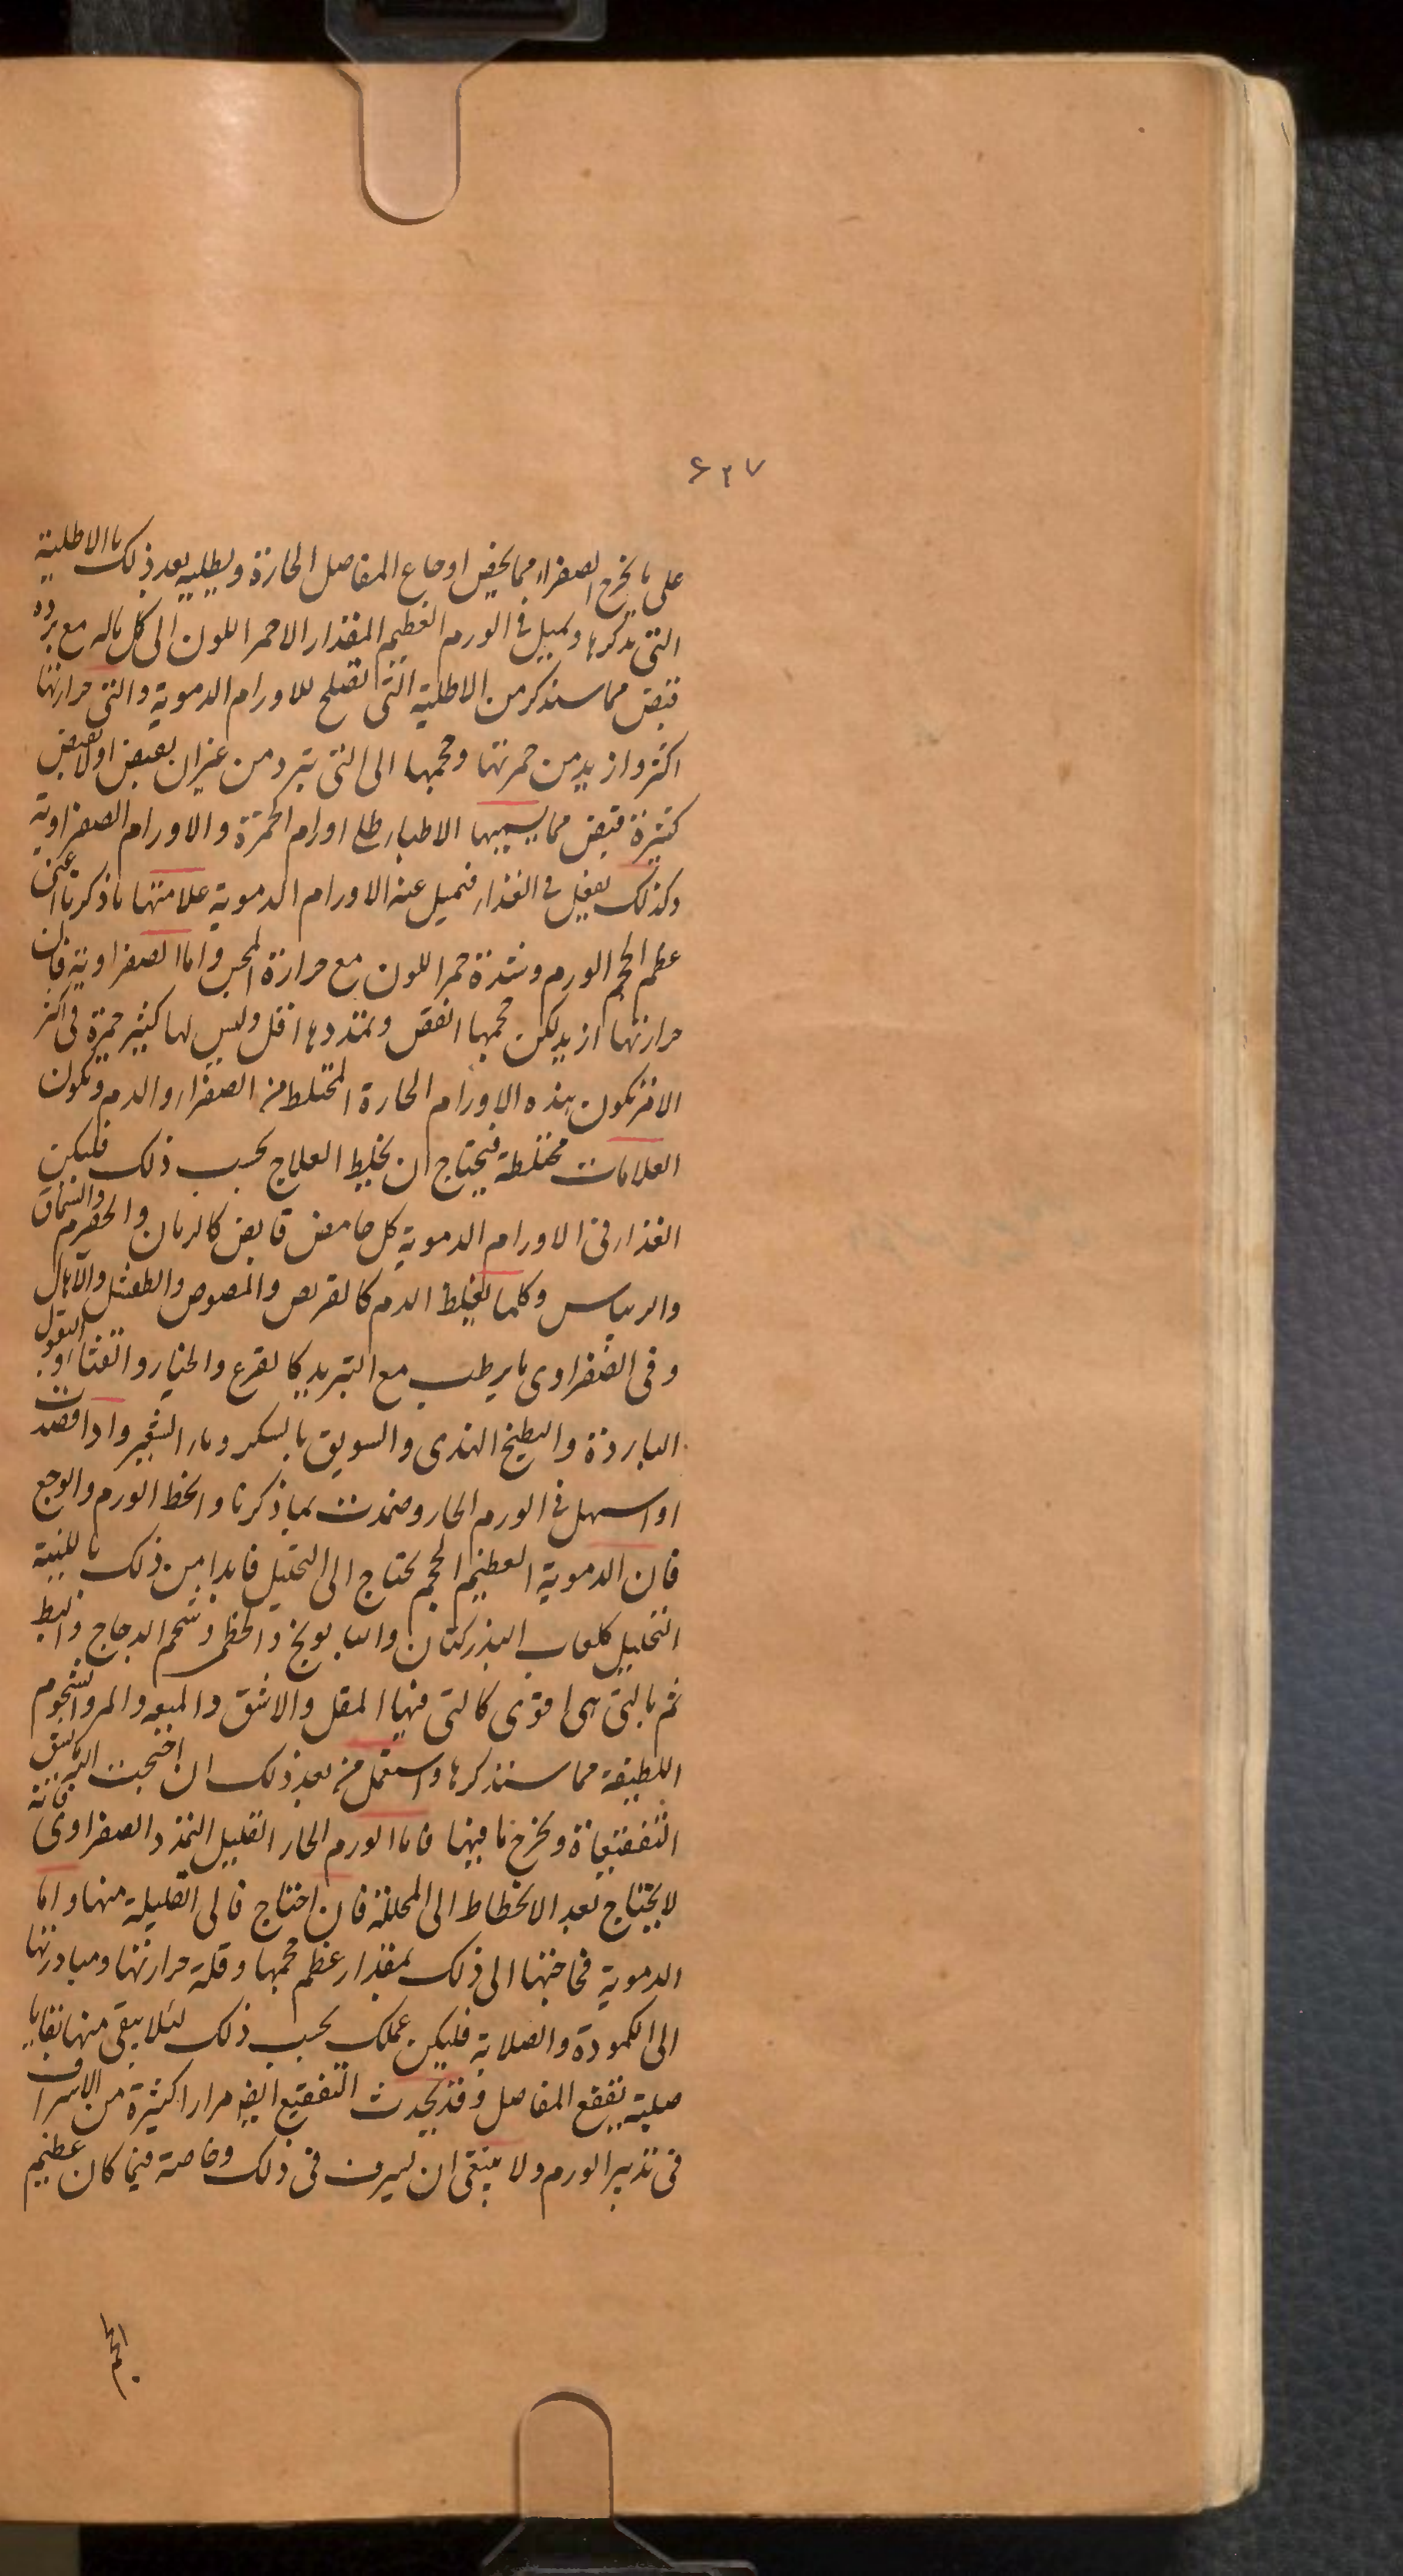 ۶۲۷
على ما يخرج الصفراء مما يخص اوجاع المفاصل الحارة ويطليه بعد ذلك بالاطلية
التى نذكرها ويميل فى الورم العظيم المقدار الاحمر اللون الى كل ماله مع برده
قبض مما سنذكر من الاطلية التى تصلح للاورام الدموية والتى حرارتها
اكثر وازيد من حمرتها وحجمها الى التى تبرد من غير ان بقبض او لا بقبض
كثيرة قبض مما يسميها الاطباء طلى اورام الحمرة والاورام الصفراوية
وكذلك يفعل فى الغذاء فنميل عنه الاورام الدموية علامتها ما ذكرنا اعنى
عظم الحجم الورم وشدة حمر اللون مع حرارة المجس واما الصفراوية فان
حرارتها ازيد لكن حجمها انقص وتمددها اقل وليس لها كثير حمرة فى اكثر
الامر تكون هذه الاورام الحارة المختلط من الصفراء والدم وتكون
العلامات مختلطة فيحتاج ان يخلط العلاج بحسب ذلك فليكن
الغذاء فى الاورام الدموية كل حامض قابض كالرمان والحصرم والسماق
والريباس وكلما يغلظ الدم كالقريص والمصوص والطفشل والآهال
وفى الصفراوى ما يرطب مع التبريد كالقرع والخيار والقثاء والبقول
الباردة والبطيخ الهندى والسويق بالسكر وماء الشعير واذا فصدت
او اسهل فى الورم الحار وضمدت بما ذكرنا وانحط الورم والوجع
فان الدموية العظيم الحجم يحتاج الى التحليل فابدا من ذلك باللينة
التحليل كلعاب البذر كتان والبابونج والخطمى وشحم الدجاج والبط
ثم بالتى هى اقوى كالتى فيها المقل والاشق والميعه والمر والشحوم
اللطيفة مما سنذكرها واستعمل من بعد ذلك ان احتجت الترياق فانه
التفقيعاة ويخرج ما فيها فاما الورم الحار القليل التمدد الصفراوى
لا يحتاج بعد الانحطاط الى المحللة فان احتاج فالى القليلة منها واما
الدموية فحاجتها الى ذلك بمقدار عظم حجمها وقلة حرارتها ومبادرتها
الى الكمودة والصلابة فليكن عملك بحسب ذلك لئلا يبقى منها بقايا
صلبة يفقع المفاصل وقد يحدث التفقيع ايضا مرارا كثيرة من الاسراف
فى تدبير الورم ولا ينبغى ان يسرف فى ذلك وخاصة فيما كان عظيم
الحجم